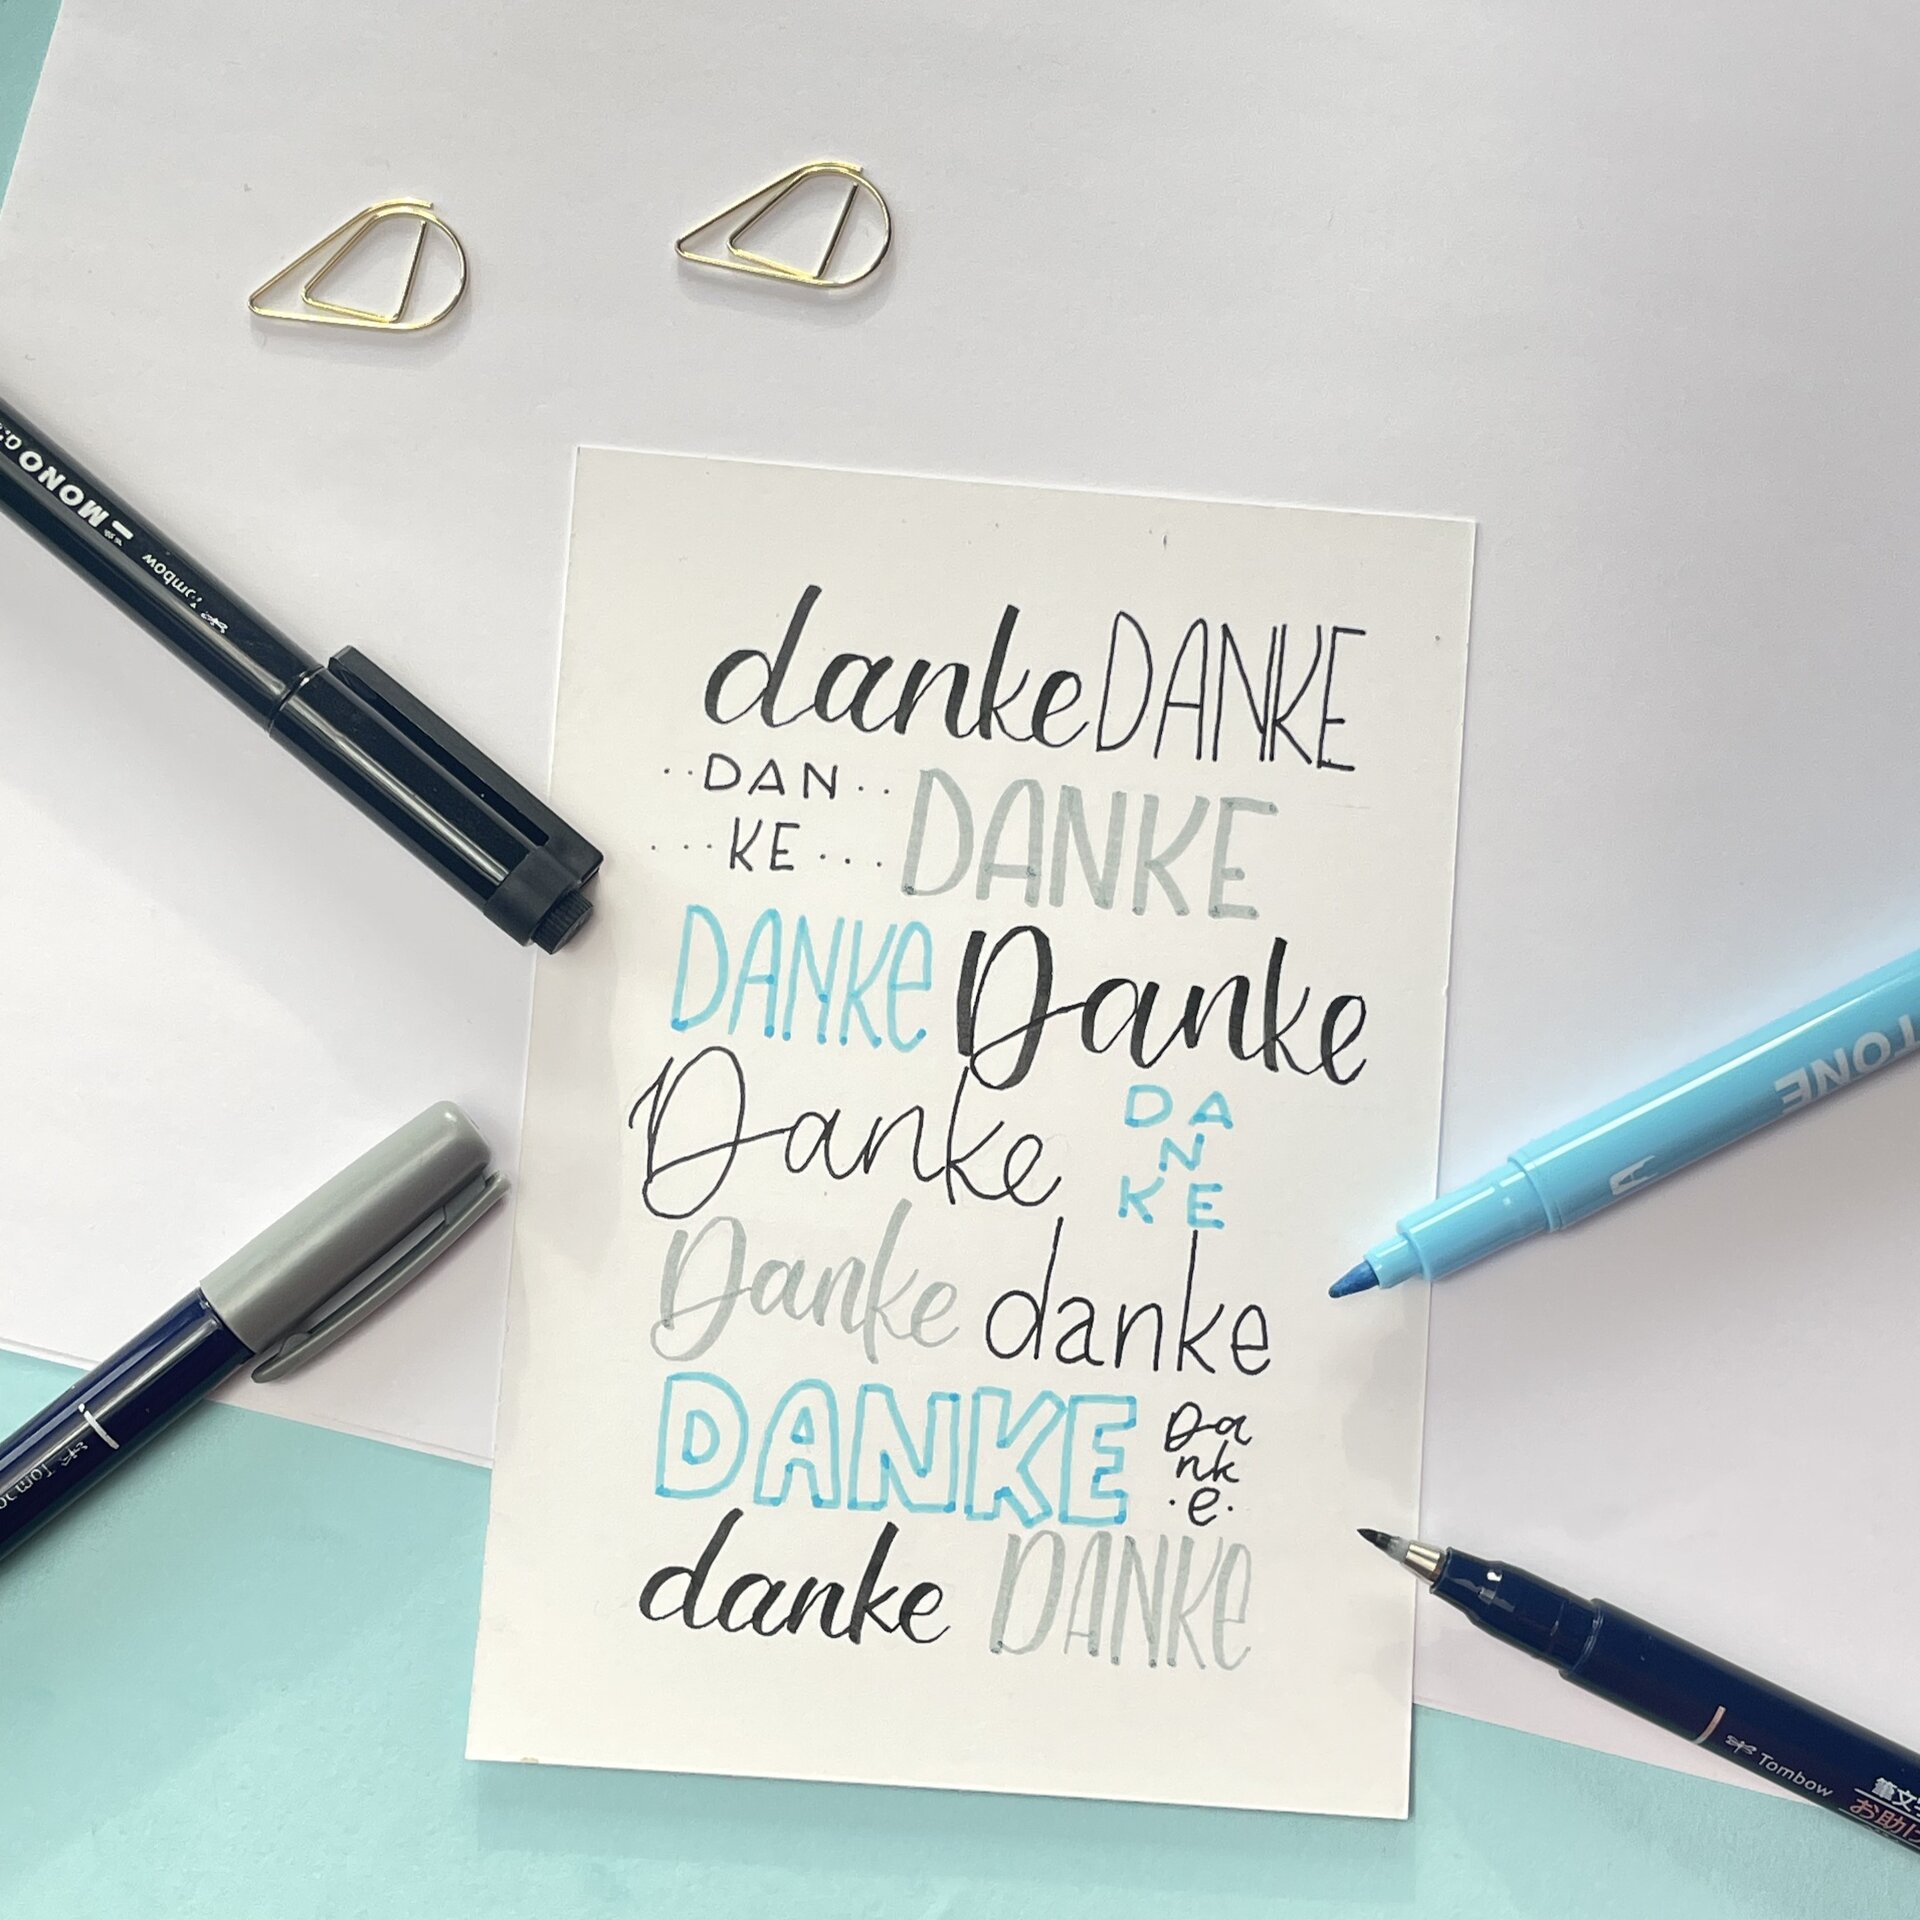 danke DANKE
··DAN·· DANKE
···KE···
DANKe Danke
Danke DA
N
KE
Danke danke
DANKE Da
nk
·e·
danke DANKe
MONO
Tombow
TONE
Tombow
筆文
お助け